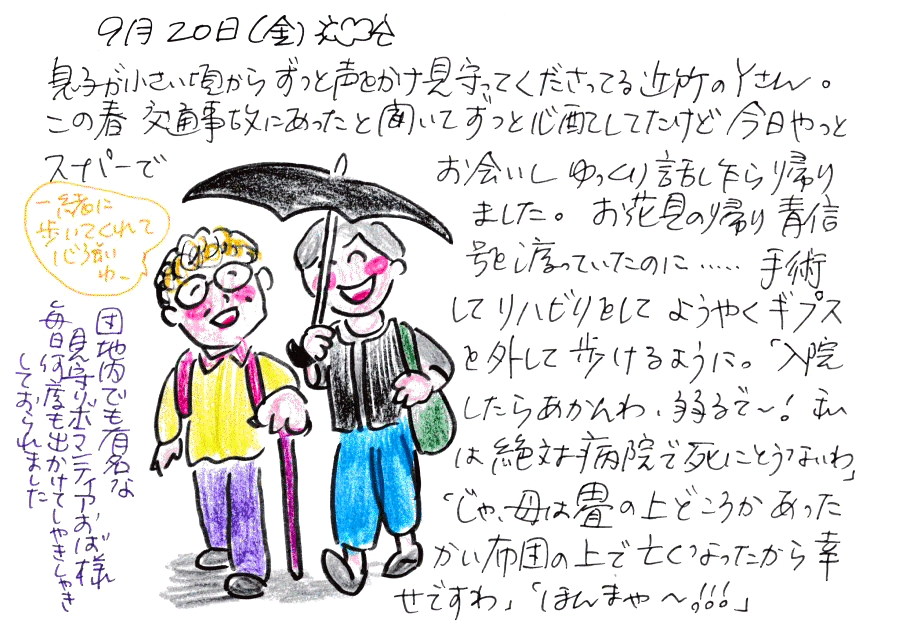 9月20日(金)
息子が小さい頃からずっと声をかけ見守ってくださってる近所のYさん。
この春 交通事故にあったと聞いてずっと心配してたけど 今日やっと
スーパーで
お会いし ゆっくり話したら帰り
ました。 お花見の帰り 青信
号を渡っていたのに…‥ 手術
して リハビリをして ようやくギプス
を外して歩けるように。「入院
したらあかんわ、弱るで〜! 私
は絶対病院で死にとうないわ」
「じゃ、母は畳の上どころか あった
かい布団の上で亡くなったから幸
せですわ」「ほんまや〜!!!」
一緒に
歩いてくれて
心強い
ゆ〜
団地内でも有名な
見守りボランティアおば様
毎日何度も出かけてしゃきしゃき
しておられました